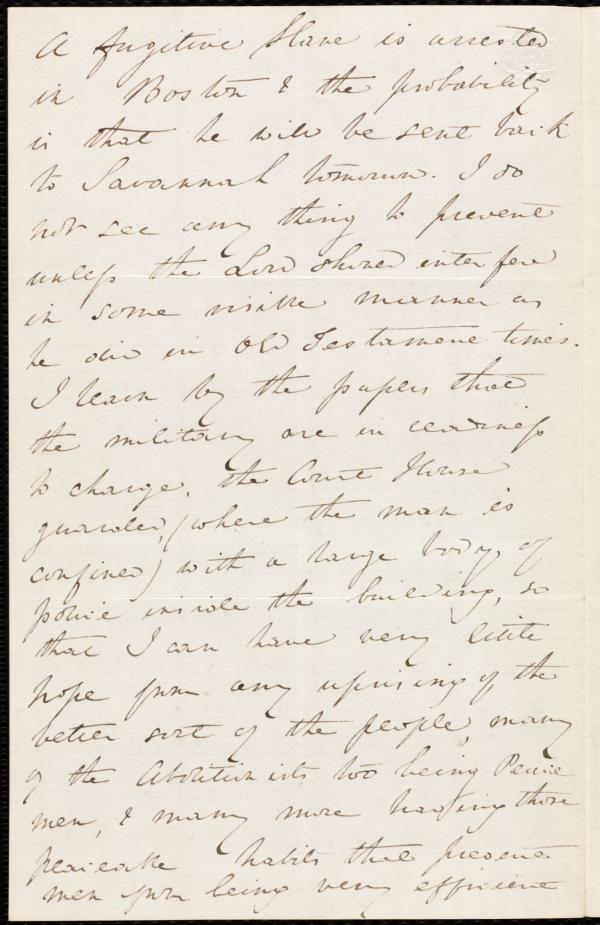 A fugitive Slave is arrested
in Boston & the probability
is that he will be sent back
to Savannah tomorrow. I do
not see any thing to prevent
unless the Lord should interfere
in some visible manner as
he did in Old Testament times.
I learn by the papers that
the military are in readiness
to charge, the Court House
guarded, (where the man is
confined) with a large body of
police inside the building, so
that I can have very little
hope from any uprising of the
better sort of the people, many
of the Abolitionists too being Peace
men, & many more having those
peaceable habits that prevent
men from being very efficient